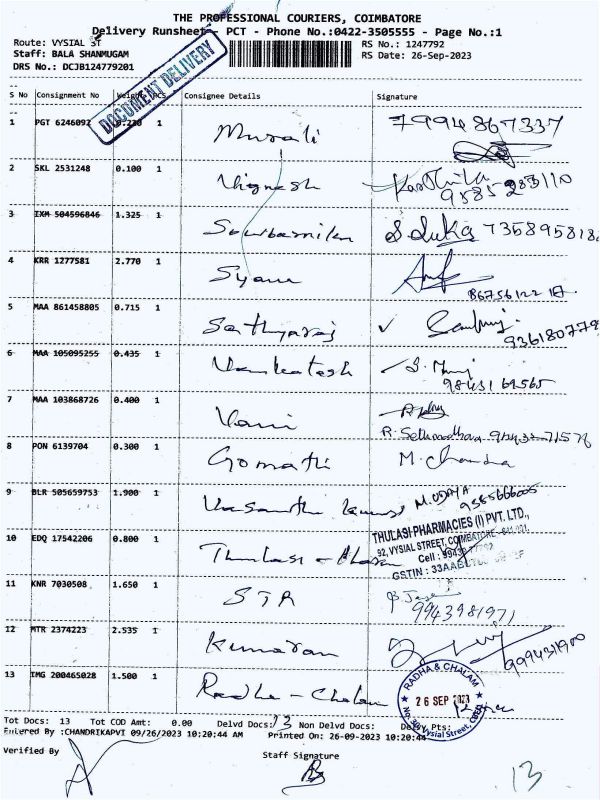 THE PROFESSIONAL COURIERS, COIMBATORE
Delivery Runsheet - PCT - Phone No.:0422-3505555 - Page No.:1
Route: VYSIAL ST
RS No.: 1247792
Staff: BALA SHANMUGAM
RS Date: 26-Sep-2023
DRS No.: DCJB124779201
DOCUMENT DELIVERY
S No Consignment No Weight PCS Consignee Details Signature
1 PGT 6246092 0.230 1 Murali 7994867337
2 SKL 2531248 0.100 1 Vignesh Karthika
3 IXM 504596846 1.325 1 Sowbarnika 735895818
4 KRR 1277581 2.770 1 Syam
5 MAA 861458805 0.715 1 Sathyaraj
936180778
6 MAA 105095255 0.435 1 Venkatesh
98431 61565
7 MAA 103868726 0.400 1 Vani
8 PON 6139704 0.300 1 Gomathi M. Chandra
9 BLR 505659753 1.900 1 Vasanthi M. UDAYA
THULASI PHARMACIES (I) PVT. LTD.,
92, VYSIAL STREET, COIMBATORE - 641 001.
Cell :
GSTIN :
10 EDQ 17542206 0.800 1 Thulasi -
11 KNR 7030508 1.650 1 STR
9943981971
12 MTR 2374223 2.535 1 Kumaran
13 IMG 200465028 1.500 1 Radha - Chalam
RADHA & CHALAM
26 SEP 2023
Vysial Street, CBE
Tot Docs: 13 Tot COD Amt: 0.00 Delvd Docs: 13 Non Delvd Docs: Delvy Pts:
Entered By :CHANDRIKAPVI 09/26/2023 10:20:44 AM Printed On: 26-09-2023 10:20:44
Verified By
Staff Signature
13